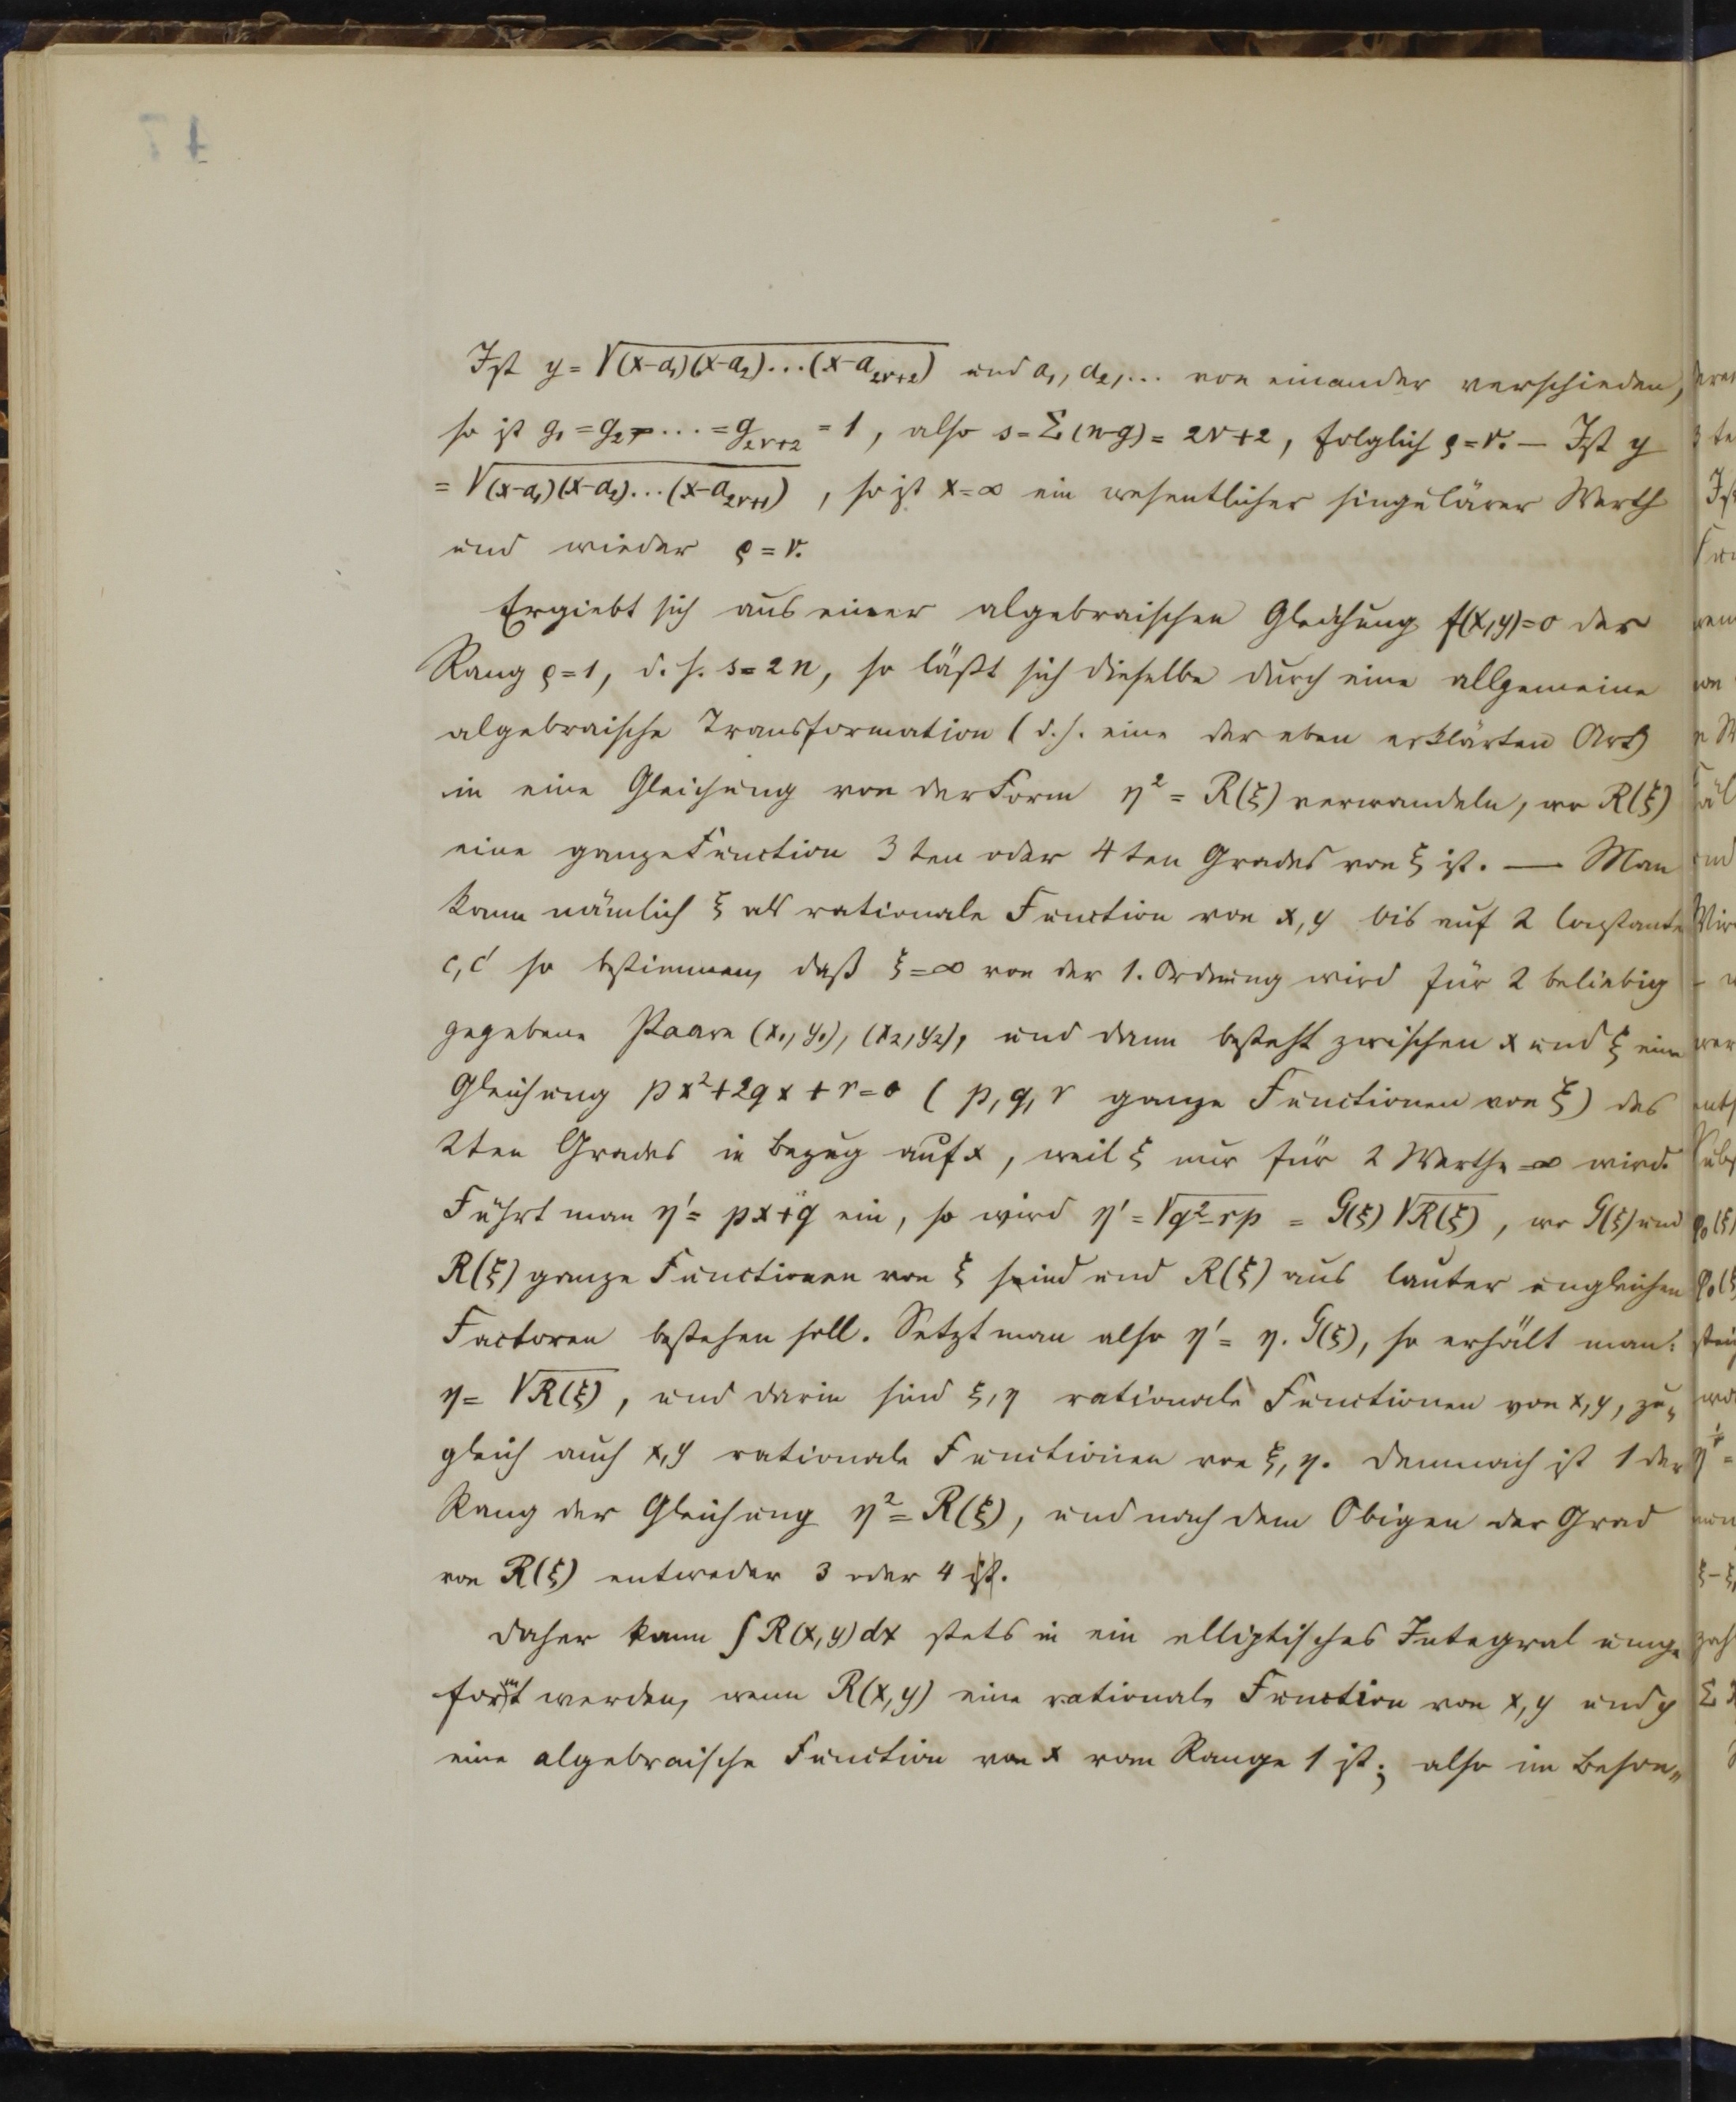 Ist y = √(x-a₁)(x-a₂)...(x-a₂ᵣ₊₂) und a₁, a₂,... von einander verschieden,
so ist g₁ = g₂ = ... = g₂ᵣ₊₂ = 1, also s = Σ(n-g) = 2r+2, folglich ρ = r. — Ist y
= √(x-a₁)(x-a₂)...(x-a₂ᵣ₊₁), so ist x = ∞ ein wesentlicher singulärer Werth
und wieder ρ = r.
Ergiebt sich aus einer algebraischen Gleichung f(x,y)=0 der
Rang ρ=1, d. h. s=2n, so läßt sich dieselbe durch eine allgemeine
algebraische Transformation (d. h. eine der eben erklärten Art)
in eine Gleichung von der Form η² = R(ξ) verwandeln, wo R(ξ)
eine ganze Function 3ten oder 4ten Grades von ξ ist. — Man
kann nämlich ξ als rationale Function von x, y bis auf 2 Constante
c, c' so bestimmen, daß ξ=∞ von der 1. Ordnung wird für 2 beliebig
gegebene Paare (x₁, y₁), (x₂, y₂), und dann besteht zwischen x und ξ eine
Gleichung px²+2qx+r=0 (p, q, r ganze Functionen von ξ) des
2ten Grades in Bezug auf x, weil ξ nur für 2 Werthe =∞ wird.
Führt man η' = px+q ein, so wird η' = √q²-rp = G(ξ) √R(ξ), wo G(ξ) und
R(ξ) ganze Functionen von ξ sind und R(ξ) aus lauter ungleichen
Factoren bestehen soll. Setzt man also η' = η. G(ξ), so erhält man:
η = √R(ξ), und darin sind ξ, η rationale Functionen von x, y, zu-
gleich auch x, y rationale Functionen von ξ, η. Demnach ist 1 der
Rang der Gleichung η² = R(ξ), und nach dem Obigen der Grad
von R(ξ) entweder 3 oder 4 ist.
Daher kann ∫R(x,y)dx stets in ein elliptisches Integral umge-
formt werden, wenn R(x,y) eine rationale Function von x, y und y
eine algebraische Function von x vom Range 1 ist; also im Beson-